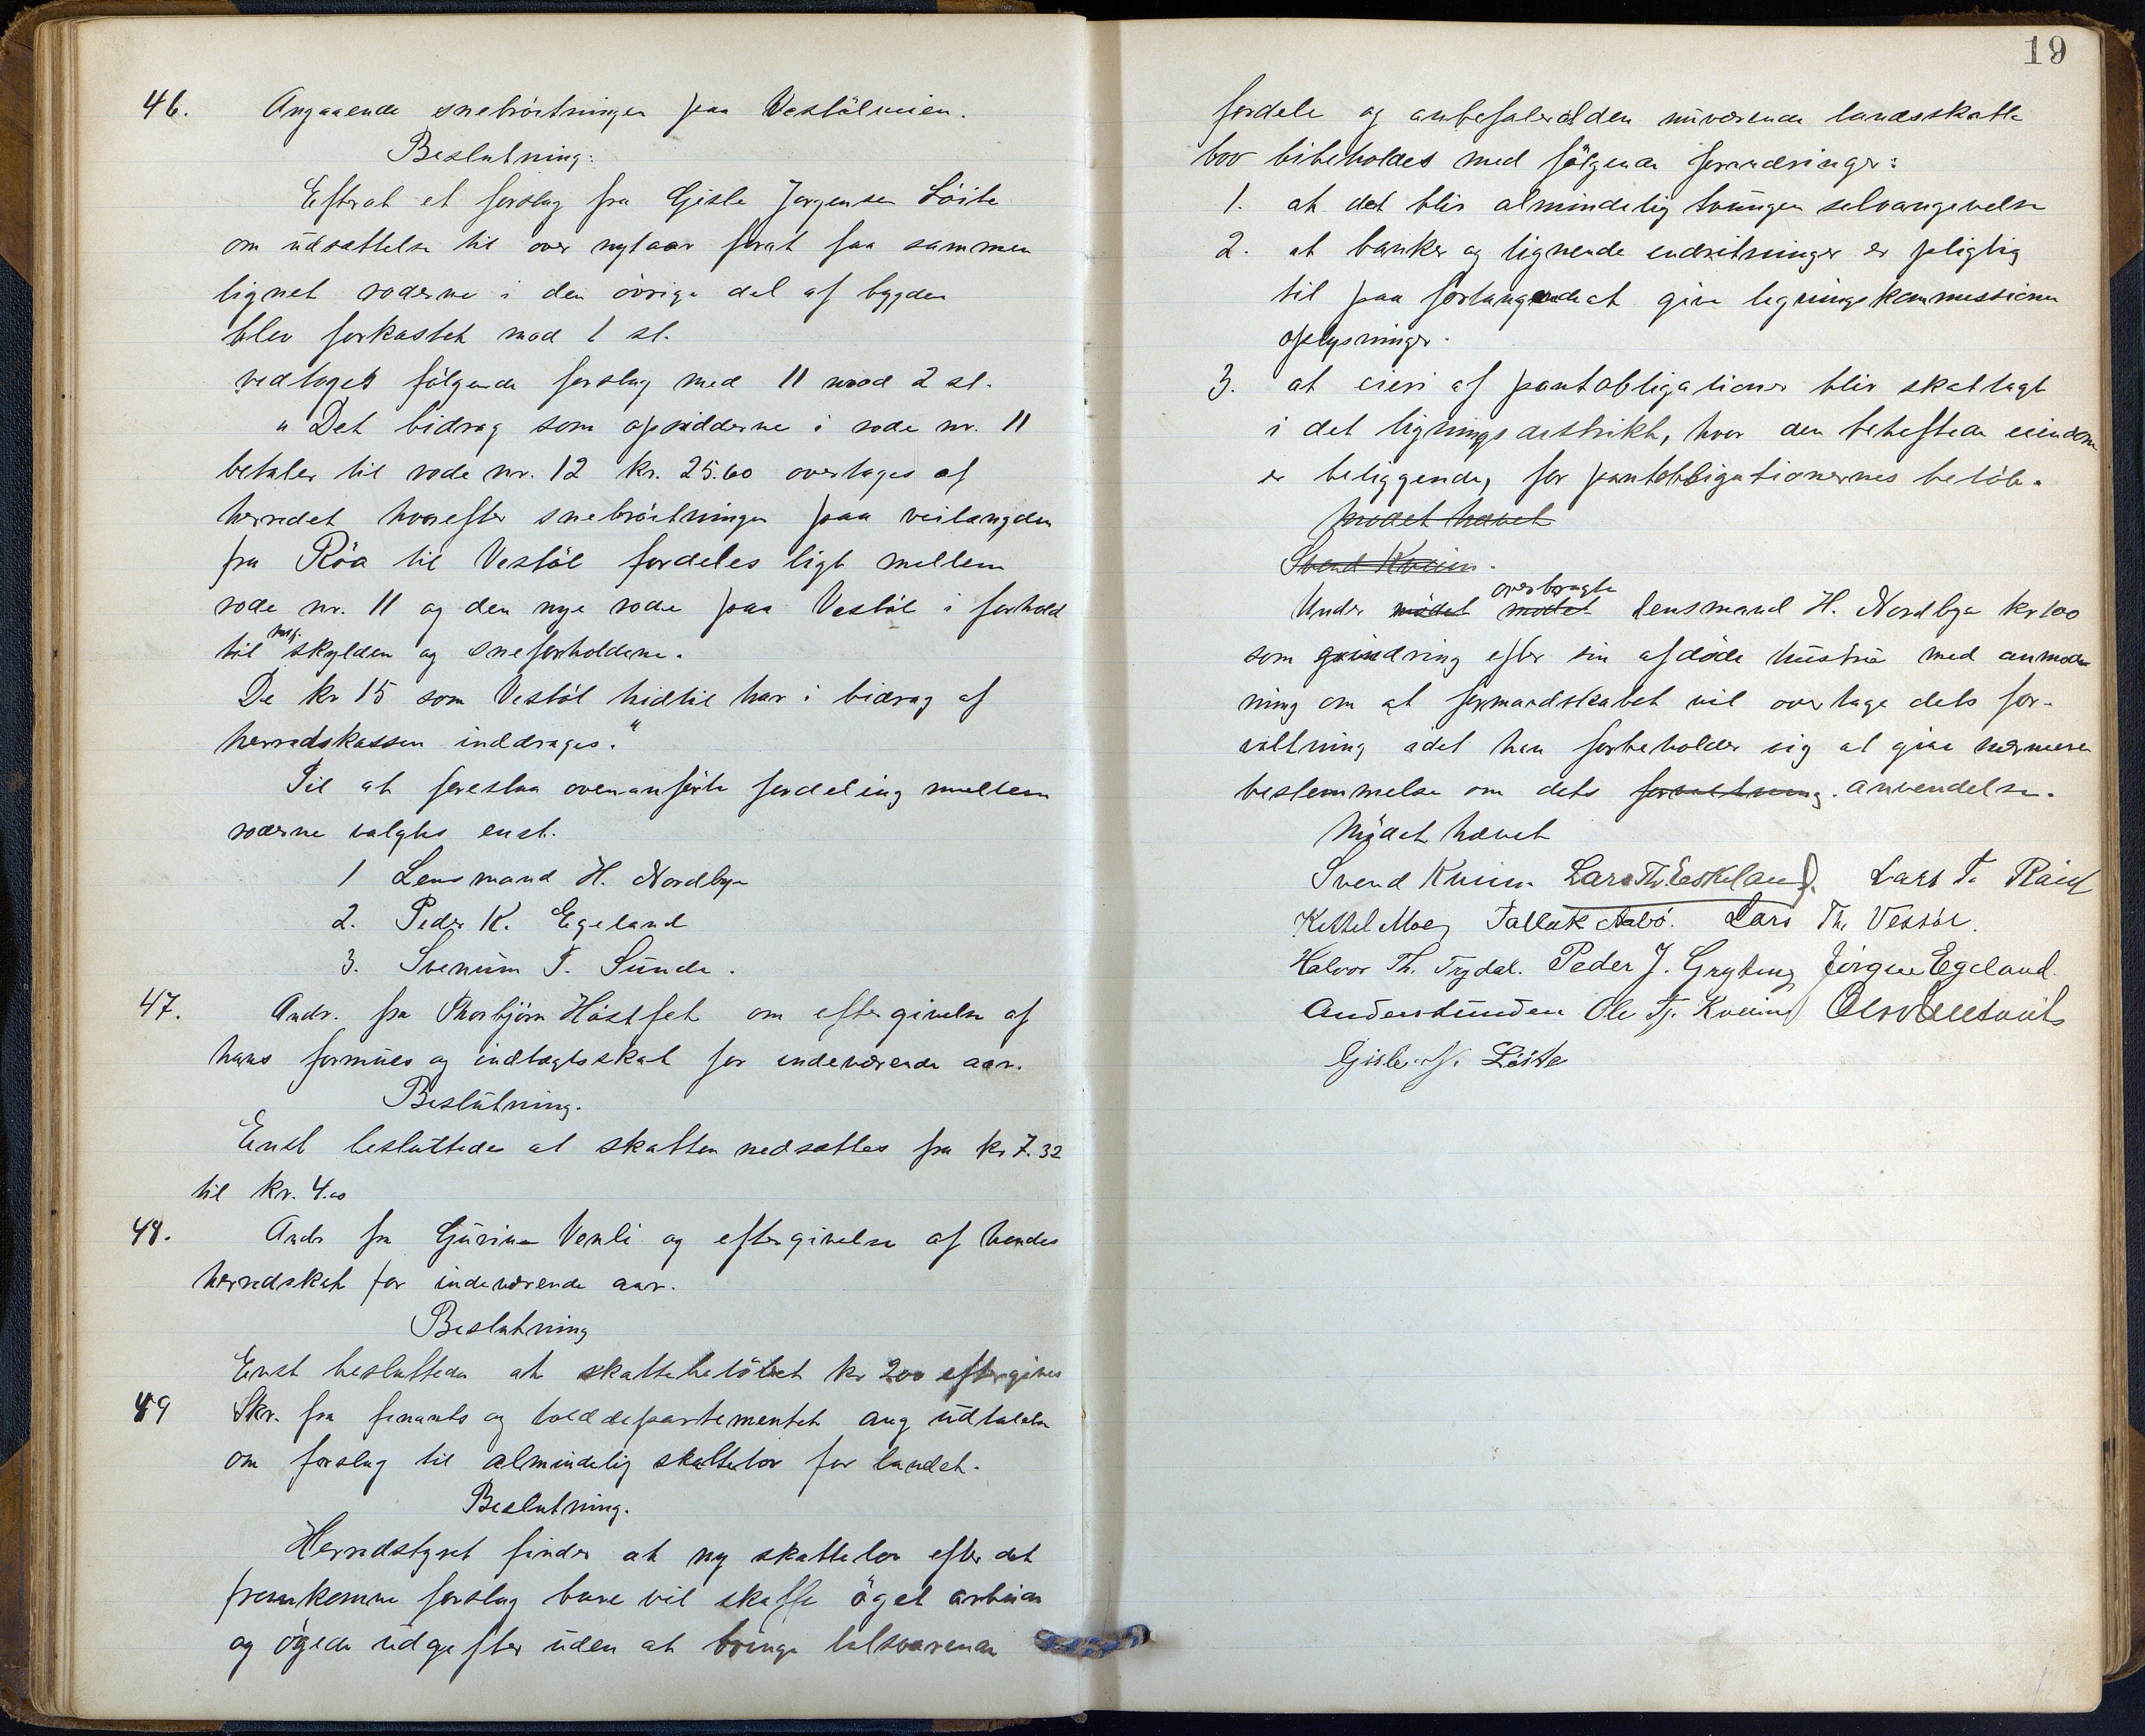 46. Angaaende snebröitningen paa Vestölveien.
Beslutning:
Efterat et forslag fra Gisle Jorgensen Löite
om udsættelse til over nytaar forat faa sammen
lignet roderne i den övrige del af bygden
blev forkastet mod 1 st.
vedtoges fölgende forslag med 11 mod 2 st.
"Det bidrag som opsidderne i rode nr. 11
betaler til rode nr. 12 kr. 25.60 overtages af
herredet hvorefter snebröitningen paa veilængden
fra Röa til Vestöl fordeles ligt mellem
rode nr. 11 og den nye rode paa Vestöl i forhold
til skylden og sneforholdene.
De kr 15 som Vestöl hidtil har i bidrag af
herredskassen inddrages."
Til at foreslaa ovenanförte fordeling mellem
roderne valgtes enst.
1 Lensmand H. Nordbye
2. Peder K. Egeland
3. Svenum T. Sunde.
47. Andr. fra Thorbjörn Höstfet om eftergivelse af
hans formues og indtægtsskat for indeværende aar.
Beslutning.
Enst besluttedes at skatten nedsættes fra kr 7.32
til kr. 4.00
48. Andr fra Gurine Venli og eftergivelse af hendes
herredskat for indeværende aar.
Beslutning
Enst besluttedes at skattebelöbet kr 200 eftergives
49 Skr. fra finants og tolddepartementet ang udtalelse
om forslag til almindelig skattelov for landet.
Beslutning.
Herredstyret finder at ny skattelov efter det
fremkomne forslag bare vil skaffe öget arbeide
og ögede udgifter uden at bringe tilsvarende
19
fordele og anbefaler at den nuværende landsskatte
lov bibeholdes med fölgende forandringer:
1. at det blir almindelig tvungen selvangivelse
2. at banker og lignende indretninger er pligtig
til paa forlangende at give ligningskommissionen
oplysninger.
3. at eieri af pantobligationer blir skatlagt
i det ligningsdistrikt, hvor den beheftede eiendom
er beliggende, for pantobligationernes belöb.
Mödet hævet
Svend Kveim.
overbragte
Under mödet mödet lensmand H. Nordbye kr 100
som erindring efter sin afdöde hustru med anmod
ning om at formandskabet vil overtage dets for-
valtning idet han forbeholder sig at give nærmere
bestemmelse om dets forvaltning. anvendelse.
Mödet hævet
Svend Kveim Lars Th. Eskeland. Lars T.
Kettel Moe Tallak Aabö. Lars Th. Vestöl.
Halvor Th. Trydal. Peder J. Gryting Jörgen Egeland.
Anders Sunden Ole Tj. Kveim
Gisle J. Löite